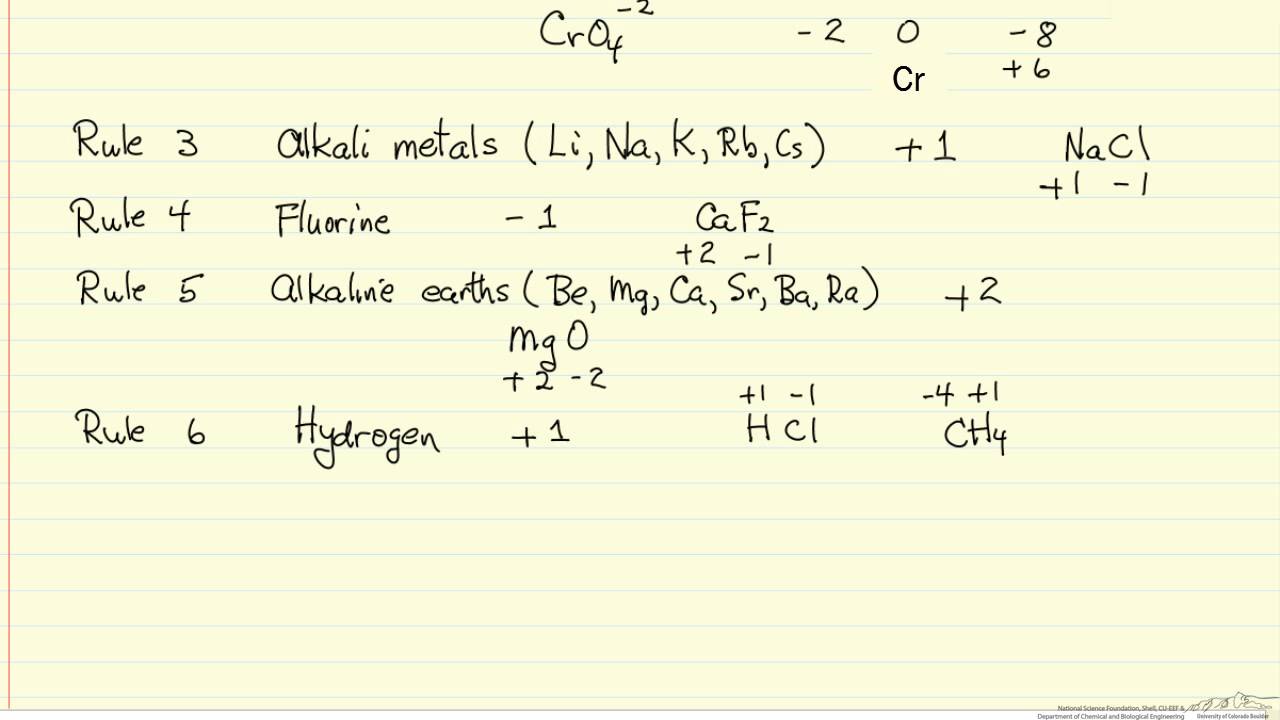 CrO₄⁻² -2 O -8
Cr +6
Rule 3 Alkali metals (Li, Na, K, Rb, Cs) +1 NaCl
+1 -1
Rule 4 Fluorine -1 CaF₂
+2 -1
Rule 5 Alkaline earths (Be, Mg, Ca, Sr, Ba, Ra) +2
MgO
+2 -2
+1 -1 -4 +1
Rule 6 Hydrogen +1 HCl CH₄
National Science Foundation, Shell, CU-EEF &
Department of Chemical and Biological Engineering University of Colorado Boulder